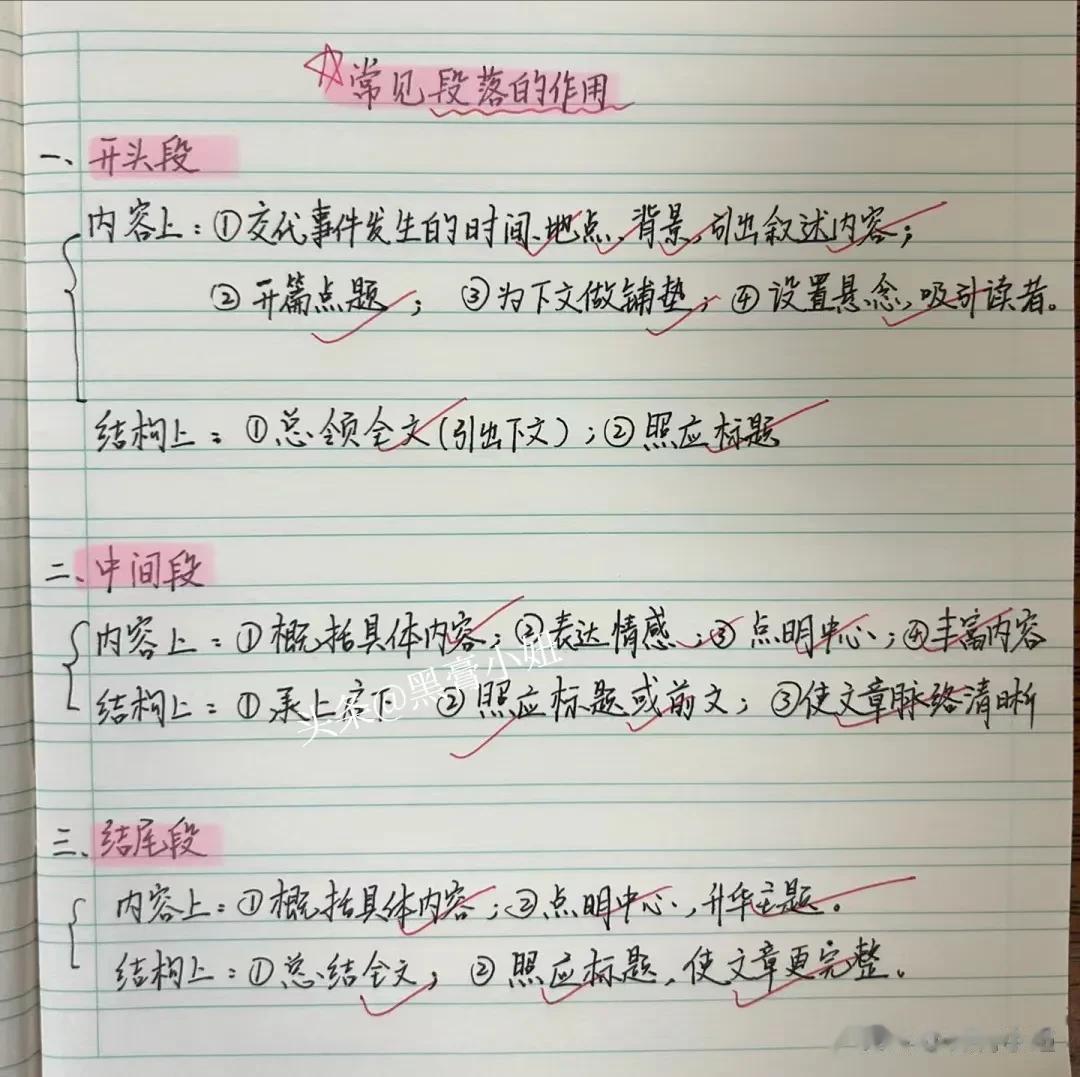 常见段落的作用
一、开头段
内容上：①交代事件发生的时间、地点、背景，引出叙述内容；
②开篇点题；③为下文做铺垫；④设置悬念，吸引读者。
结构上：①总领全文(引出下文)；②照应标题
二、中间段
内容上：①概括具体内容；②表达情感；③点明中心；④丰富内容
结构上：①承上启下 ②照应标题或前文；③使文章脉络清晰
头条@黑膏小妞
三、结尾段
内容上：①概括具体内容；②点明中心，升华主题。
结构上：①总结全文；②照应标题，使文章更完整。